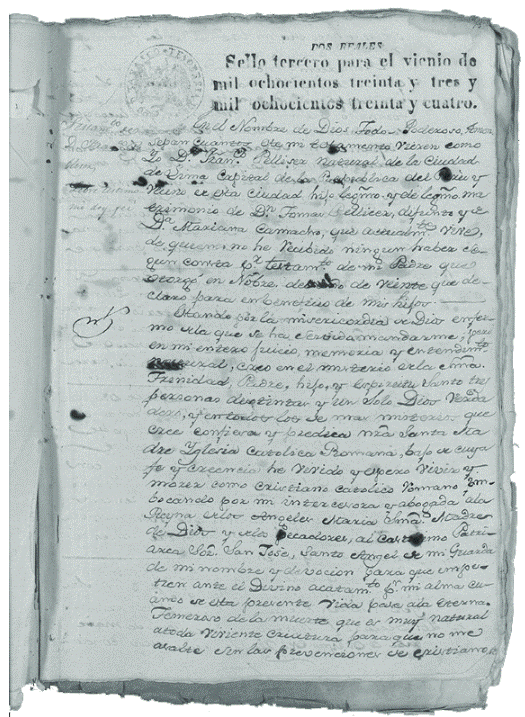 DOS REALES
Sello tercero para el vienio de
mil ochocientos treinta y tres y
mil ochocientos treinta y cuatro.
En el Nombre de Dios Todo Poderoso, Amen
Sepan cuantos esta mi testamento vieren como
Yo Dn. Franco. Pellicer Natural de la Ciudad
de Lima Capital de la Republica del Peru y
Vecino de esta Ciudad hijo legmo. y de legmo. ma
trimonio de Dn. Tomas Pellicer, difunto y de
Da. Mariana Camacho, que actualmte. vive,
de quienes no he recibido ningun haber se
gun consta pr. testamto. de mi Padre que
otorgó en Nobre. de de veinte que de
claro para en beneficio de mis hijos.
Estando por la misericordia de Dios enfer
mo de la que se ha servido mandarme, pero
en mi entero juicio, memoria y entendimto.
natural, creo en el misterio de la Sma.
Trenidad, Padre, hijo, y Espiritu Santo tres
personas destintas y un Solo Dios Verda
dero, y en todos los de mas misterios que
cree confiesa y predica nra Santa Ma
dre Iglesia Catolica Romana, bajo de cuya
fe y creencia he Vivido y espero Vivir y
morir como cristiano catolico Romano Ymbo
cando por mi intercesora y abogada ala
Reyna delos Angeles Maria Sma. Madre
de Dios y delos Pecadores, al Castisimo Patri-
arca Sor. San José, Santo Angel de mi Guarda
de mi nombre y devocion para que impe
tren ante el Divino acatamto. pr. mi alma cu
ando de esta presente Vida pase ala Eterna.
Temeroso de la muerte que es muy natural
atoda Viviente criatura para que no me
asalte sin las prevenciones de cristiano,